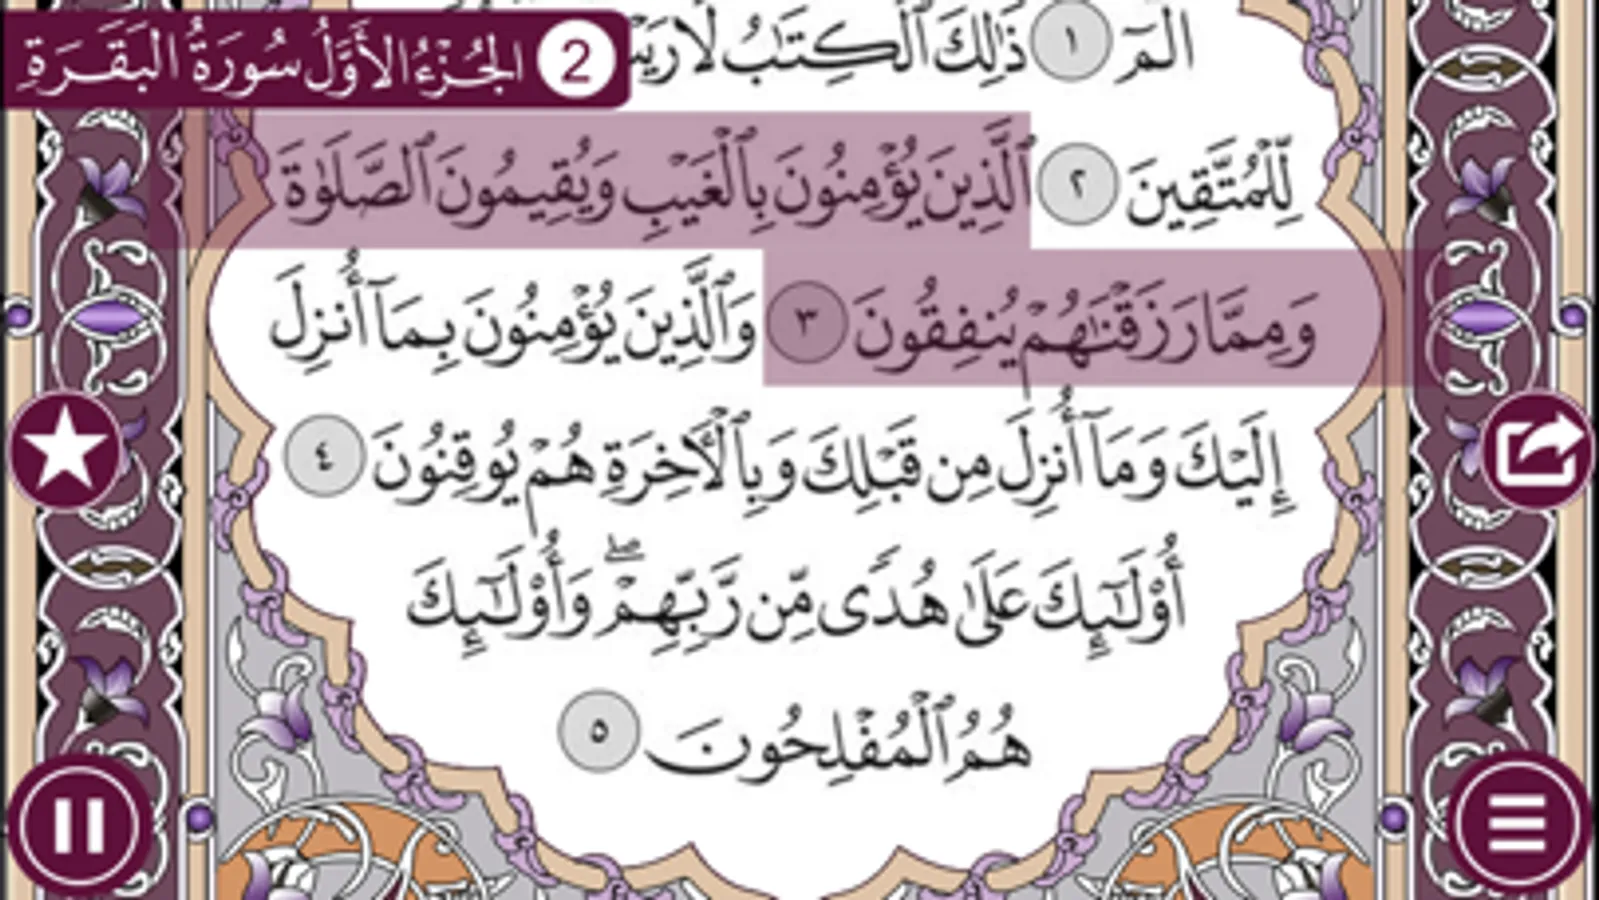 2 الجُزْءُ الأَوَّلُ سُورَةُ البَقَرَةِ
الٓمٓ ١ ذَٰلِكَ ٱلْكِتَٰبُ لَا
لِّلْمُتَّقِينَ ٢ ٱلَّذِينَ يُؤْمِنُونَ بِٱلْغَيْبِ وَيُقِيمُونَ ٱلصَّلَوٰةَ
وَمِمَّا رَزَقْنَٰهُمْ يُنفِقُونَ ٣ وَٱلَّذِينَ يُؤْمِنُونَ بِمَآ أُنزِلَ
إِلَيْكَ وَمَآ أُنزِلَ مِن قَبْلِكَ وَبِٱلْأَخِرَةِ هُمْ يُوقِنُونَ ٤
أُو۟لَٰٓئِكَ عَلَىٰ هُدًى مِّن رَّبِّهِمْ ۖ وَأُو۟لَٰٓئِكَ
هُمُ ٱلْمُفْلِحُونَ ٥